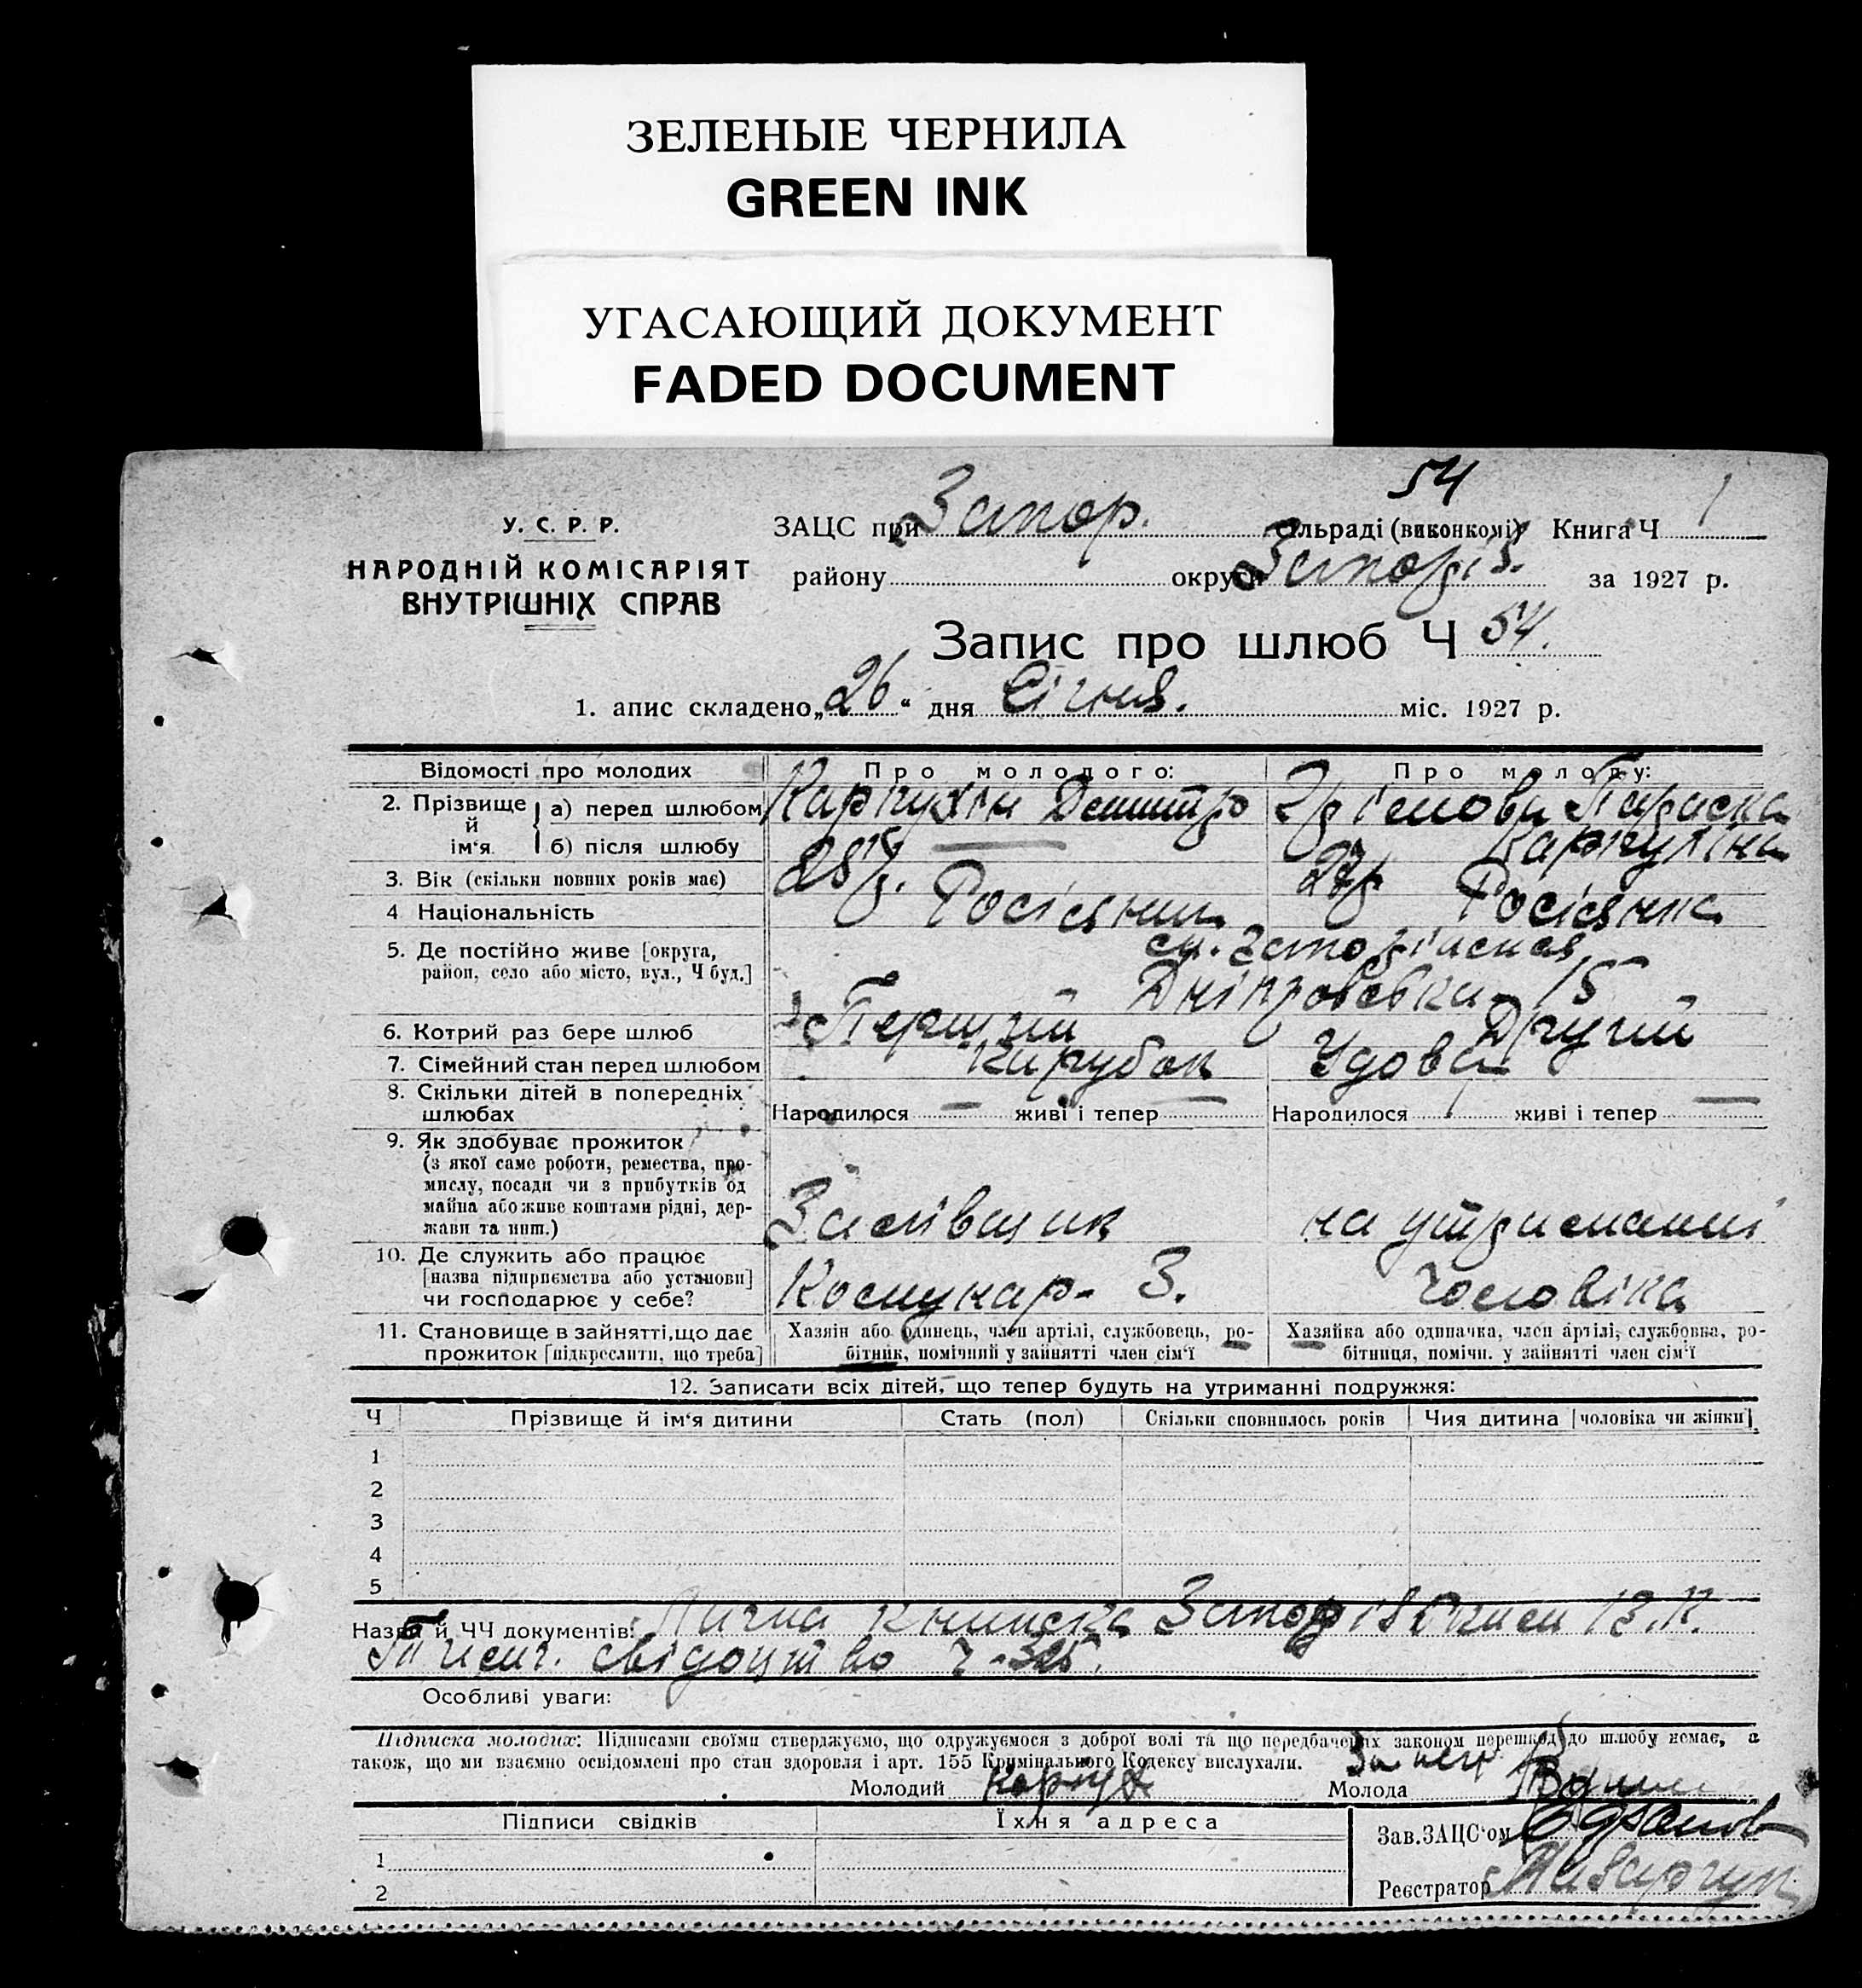 ЗЕЛЕНЫЕ ЧЕРНИЛА
GREEN INK
УГАСАЮЩИЙ ДОКУМЕНТ
FADED DOCUMENT
54
У. С. Р. Р.
НАРОДНІЙ КОМІСАРІЯТ
ВНУТРІШНІХ СПРАВ
ЗАЦС при Запор. сільраді (виконкомі) Книга Ч 1
району округи Запоріз. за 1927 р.
Запис про шлюб Ч 54.
1. апис складено „26“ дня Січня. міс. 1927 р.
Відомості про молодих Про молодого: Про молоду:
2. Прізвище й ім‘я а) перед шлюбом Карпухін Дмитро Параска
б) після шлюбу Карпухіна
3. Вік (скільки повних років має) 28 р. 27 р.
4 Національність Росіянин Росіянка
5. Де постійно живе [округа, район, село або місто, вул., Ч буд.]
Дніпровська 15
6. Котрий раз бере шлюб Перший Другий
7. Сімейний стан перед шлюбом Парубок Удова
8. Скільки дітей в попередніх шлюбах Народилося — живі і тепер — Народилося 1 живі і тепер —
9. Як здобуває прожиток
(з якої саме роботи, ремества, про-
мислу, посади чи з прибутків од
майна або живе коштами рідні, дер-
жави та инш.) Залівщик на утриманні
10. Де служить або працює
[назва підприємства або установи]
чи господарює у себе? Комунар. З. чоловіка
11. Становище в зайнятті, що дає прожиток [підкреслити, що треба]
Хазяін або одинець, член артілі, службовець, ро-
бітник, помічний у зайнятті член сім‘ї
Хазяйка або одиначка, член артілі, службовка, ро-
бітниця, помічн. у зайнятті член сім‘ї
12. Записати всіх дітей, що тепер будуть на утриманні подружжя:
Ч Прізвище й ім‘я дитини Стать (пол) Скільки сповнилось років Чия дитина [чоловіка чи жінки]
1
2
3
4
5
Назва й ЧЧ документів: Лична книжка
свідоцтво ч. 325.
Особливі уваги:
Підписка молодих: Підписами своїми стверджуємо, що одружуємося з доброї волі та що передбачених законом перешкод до шлюбу немає, а
також, що ми взаємно освідомлені про стан здоровля і арт. 155 Кримінального Кодексу вислухали.
Молодий Карпух Молода
Підписи свідків Їхня адреса
Зав.ЗАЦС‘ом
1
Реєстратор
2